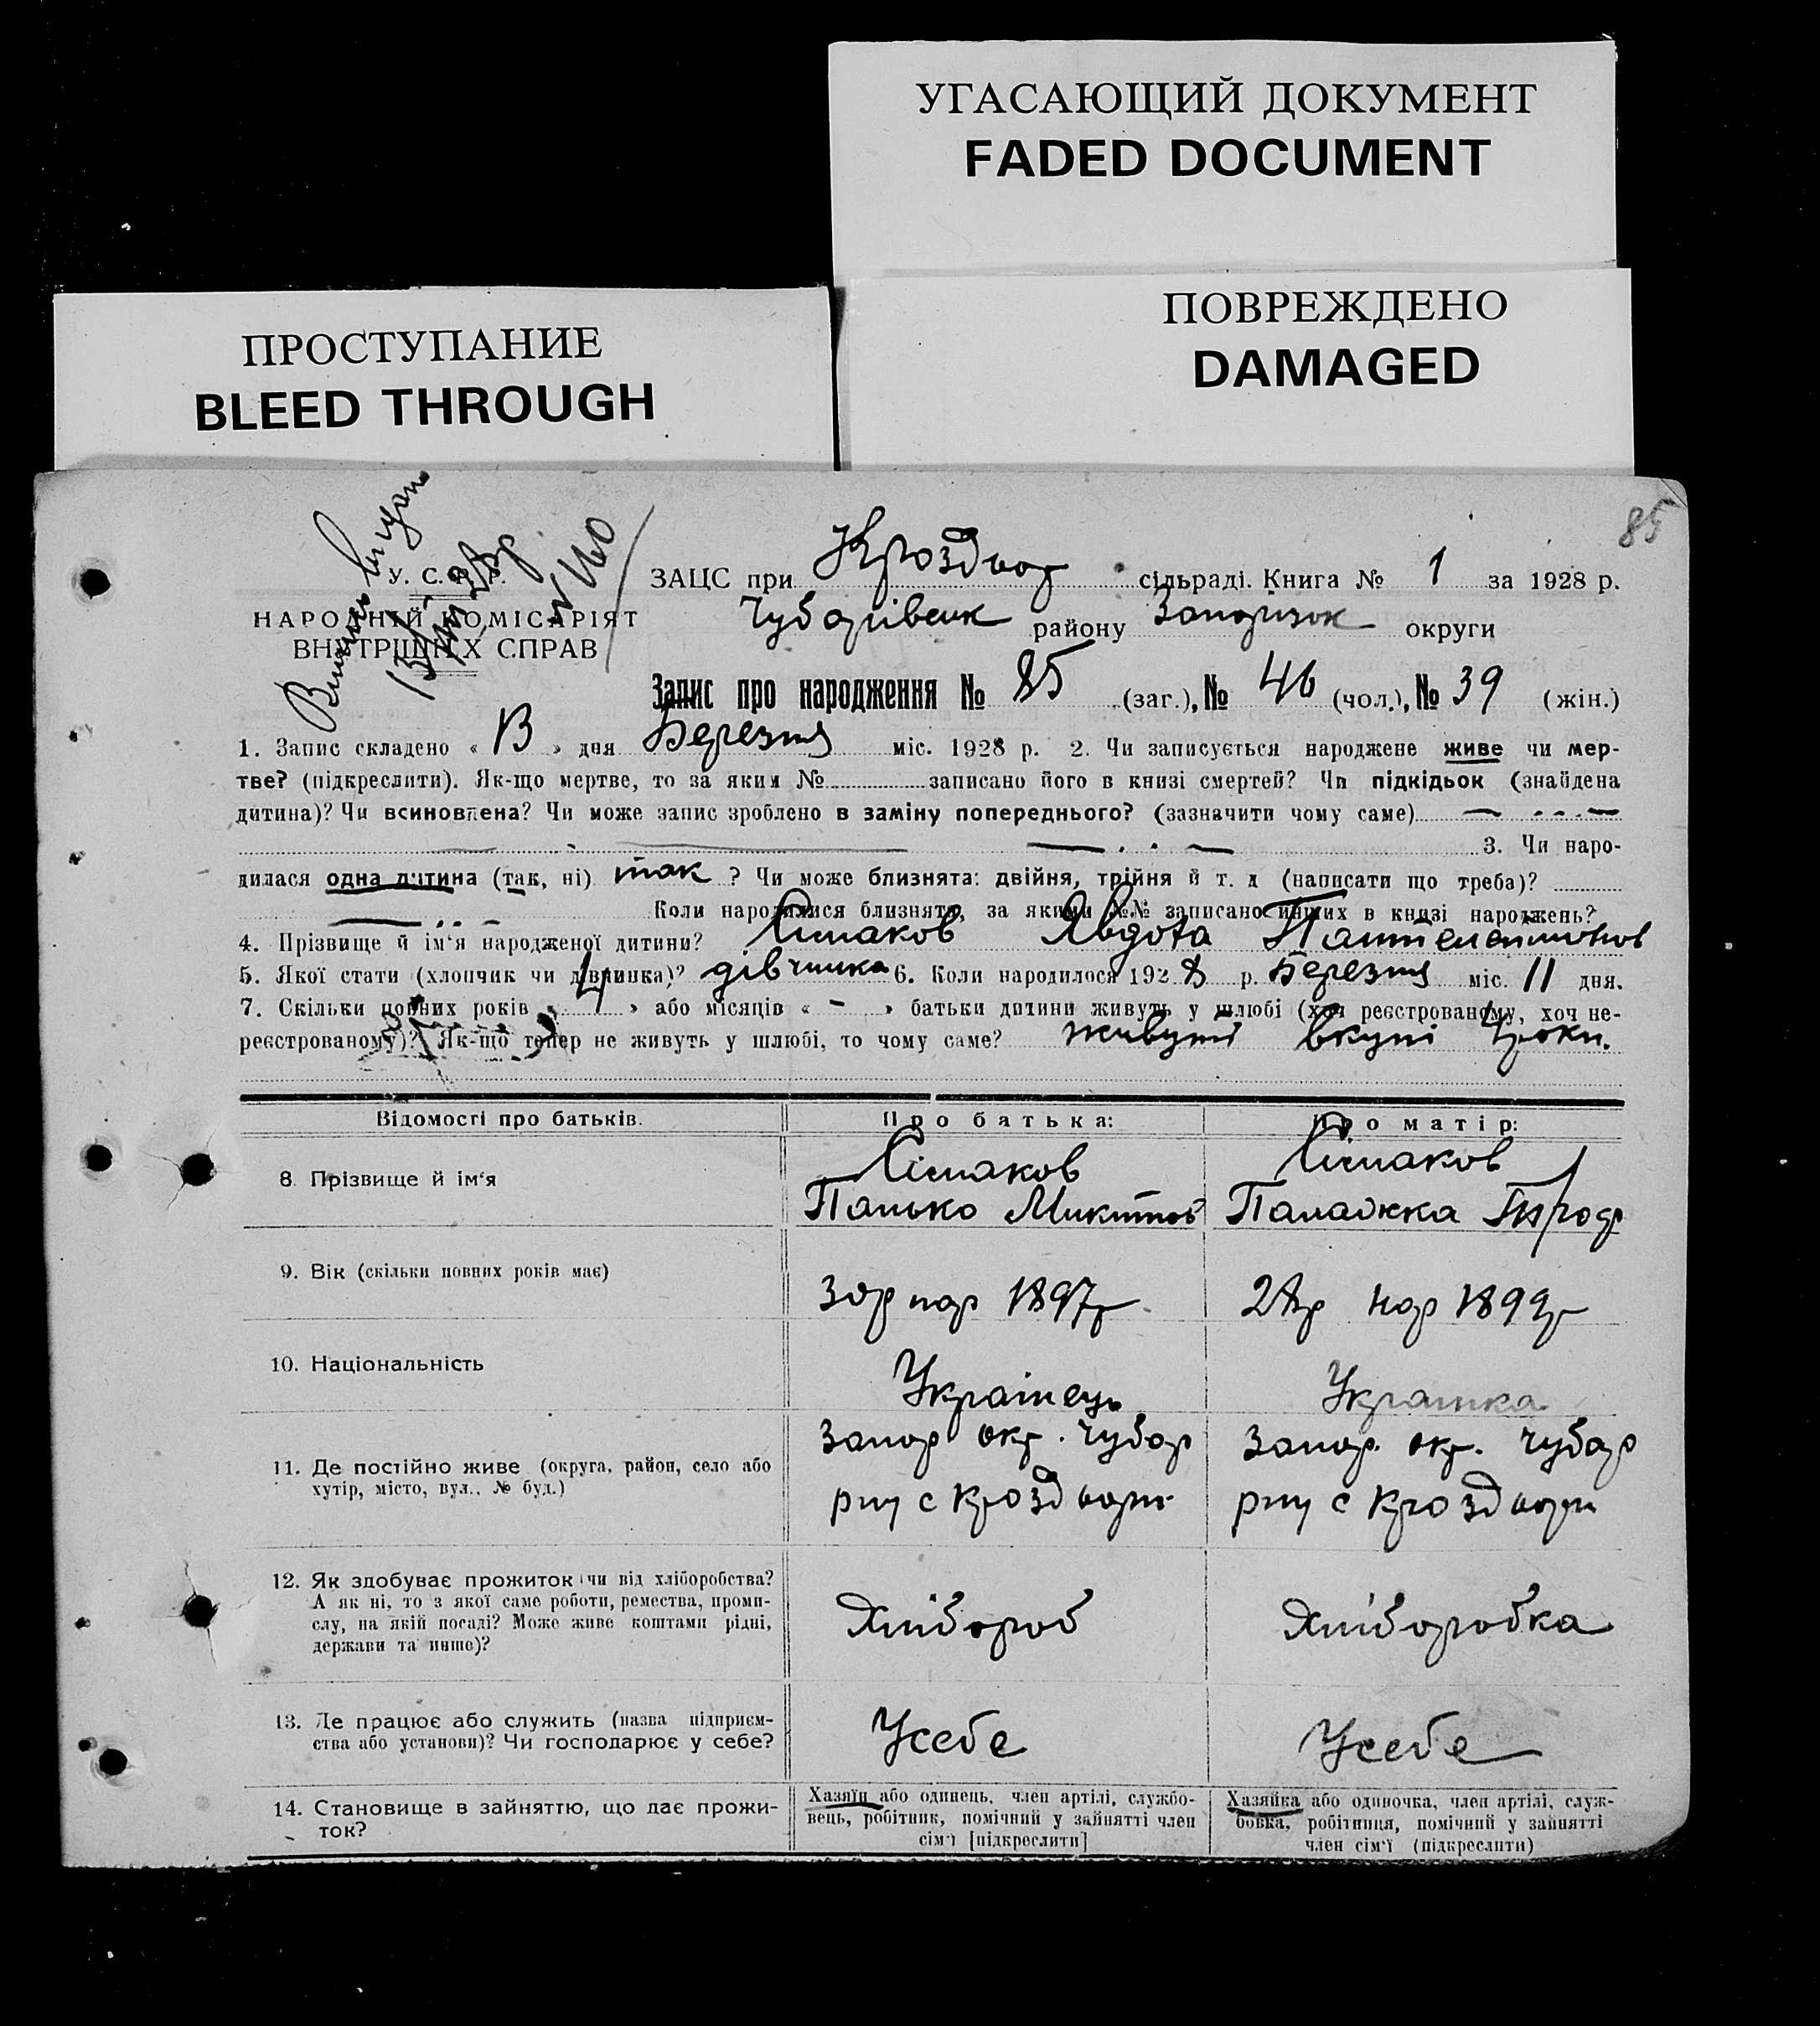 УГАСАЮЩИЙ ДОКУМЕНТ
FADED DOCUMENT
ПОВРЕЖДЕНО
DAMAGED
ПРОСТУПАНИЕ
BLEED THROUGH
85
У. С. Р. Р.
НАРОДНІЙ КОМІСАРІЯТ
ВНУТРІШНІХ СПРАВ
ЗАЦС при Кроздвор сільраді. Книга № 1 за 1928 р.
Чубарівськ району Запорізьк округи
Запис про народження № 85 (заг.), № 46 (чол.), № 39 (жін.)
1. Запис складено « 13 » дня Березня міс. 1928 р. 2. Чи записується народжене живе чи мер-
тве? (підкреслити). Як-що мертве, то за яким № записано його в книзі смертей? Чи підкідьок (знайдена
дитина)? Чи всиновлена? Чи може запис зроблено в заміну попереднього? (зазначити чому саме)
3. Чи наро-
дилася одна дитина (так, ні) так ? Чи може близнята: двійня, трійня й т. д (написати що треба)?
Коли народилися близнята, за якими №№ записано инших в книзі народжень?
4. Прізвище й ім'я народженої дитини? Явдоха
5. Якої стати (хлопчик чи дівчинка)? дівчинка 6. Коли народилося 1928 р. Березня міс. 11 дня.
7. Скільки повних років « 4 » або місяців « - » батьки дитини живуть у шлюбі (хоч реєстрованому, хоч не-
реєстрованому)? Як-що тепер не живуть у шлюбі, то чому саме? живуть вкупі 4 роки.
Відомості про батьків.
Про батька:
Про матір:
8. Прізвище й ім'я
Панько Микитов
Палажка
9. Вік (скільки повних років має)
30р нар 1897р
28р нар 1899р
10. Національність
Українець
Українка
11. Де постійно живе (округа, район, село або
хутір, місто, вул., № буд.)
Запор окр. Чубар
рну с Кроздвори
Запор. окр. Чубар
рну с Кроздвори
12. Як здобуває прожиток чи від хліборобства?
А як ні, то з якої саме роботи, ремества, проми-
слу, на якій посаді? Може живе коштами рідні,
держави та инше)?
Хлібороб
Хліборобка
13. Де працює або служить (назва підприєм-
ства або установи)? Чи господарює у себе?
Усебе
Усебе
14. Становище в зайняттю, що дає прожи-
ток?
Хазяїн або одинець, член артілі, службо-
вець, робітник, помічний у зайнятті член
сім'ї [підкреслити]
Хазяйка або одиночка, член артілі, служ-
бовка, робітниця, помічний у зайнятті
член сім'ї (підкреслити)